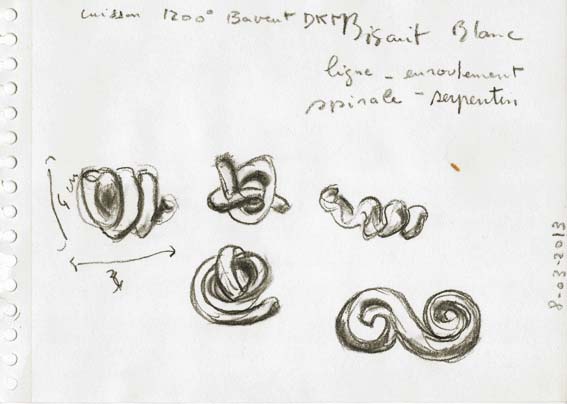 cuisson 1200° Bavent DKM Biscuit Blanc
ligne - enroulement
spirale - serpentin
4 cm
8-03-2013